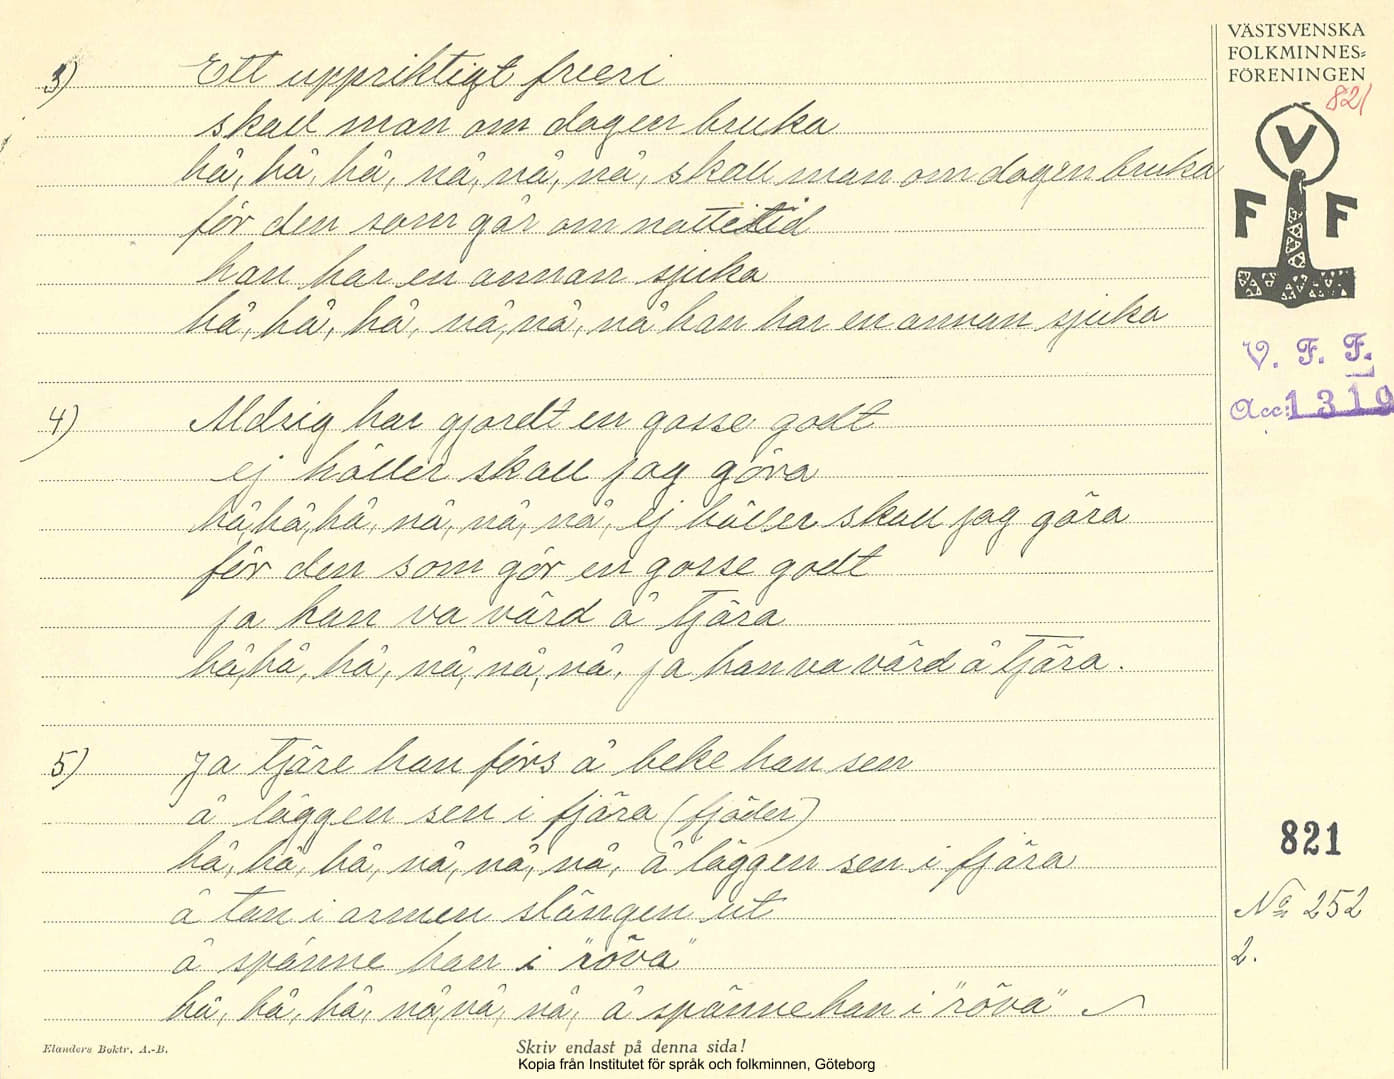 VÄSTSVENSKA
FOLKMINNES-
FÖRENINGEN
821
V
F F
V. F. F.
Acc: 1319
3) Ett uppriktigt frieri
skall man om dagen bruka
hå, hå, hå, nå, nå, nå, skall man om dagen bruka
för den som går om nattetid
han har en annan sjuka
hå, hå, hå, nå, nå, nå han har en annan sjuka
4) Aldrig har gjordt en gosse godt
ej häller skall jag göra
hå, hå, hå, nå, nå, nå, ej häller skall jag göra
för den som gör en gosse godt
ja han va värd å tjära
hå, hå, hå, nå, nå, nå, ja han va värd å tjära.
5) Ja tjäre han förs å beke han sen
å läggen sen i fjära (fjäder)
hå, hå, hå, nå, nå, nå, å läggen sen i fjära
å tan i armen slängen ut
å spänne han i "röva"
hå, hå, hå, nå, nå, nå, å spänne han i "röva"
821
No 252
2.
Elanders Boktr. A.-B.
Skriv endast på denna sida!
Kopia från Institutet för språk och folkminnen, Göteborg